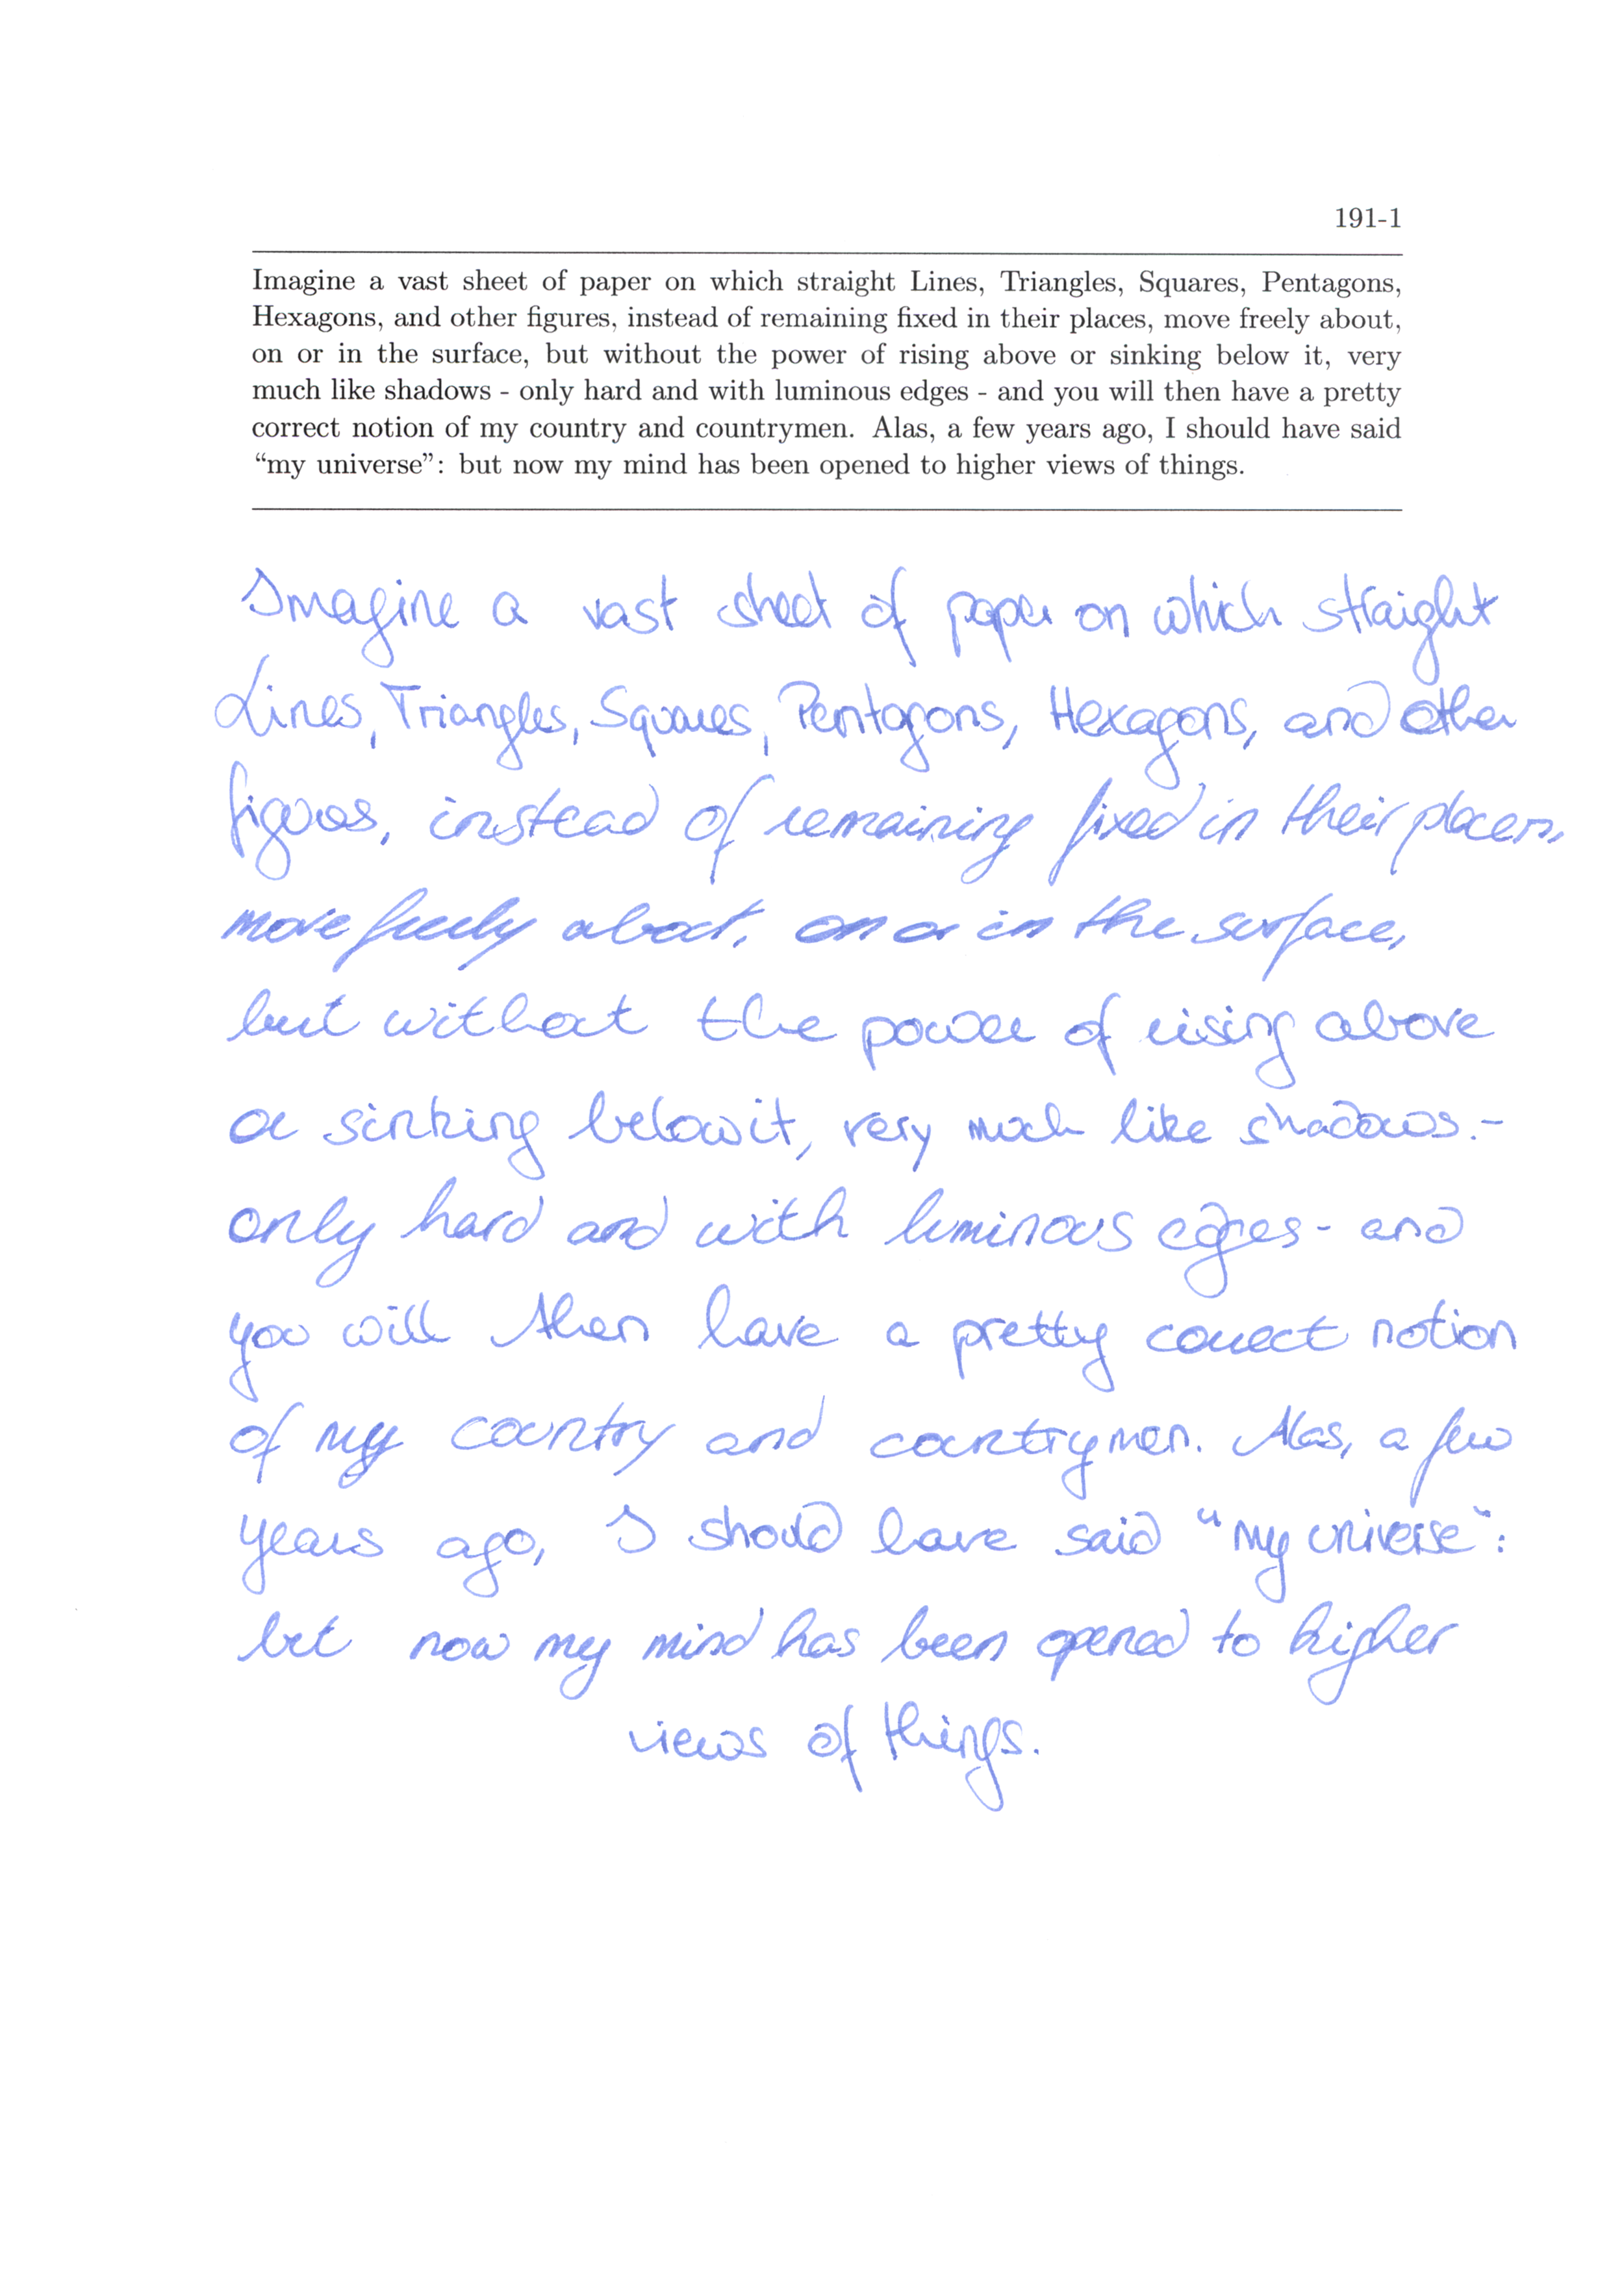 191-1
Imagine a vast sheet of paper on which straight Lines, Triangles, Squares, Pentagons,
Hexagons, and other figures, instead of remaining fixed in their places, move freely about,
on or in the surface, but without the power of rising above or sinking below it, very
much like shadows - only hard and with luminous edges - and you will then have a pretty
correct notion of my country and countrymen. Alas, a few years ago, I should have said
“my universe”: but now my mind has been opened to higher views of things.
Imagine a vast sheet of paper on which straight
Lines, Triangles, Squares, Pentagons, Hexagons, and other
figures, instead of remaining fixed in their places,
move freely about, on or in the surface,
but without the power of rising above
or sinking below it, very much like shadows.-
only hard and with luminous edges - and
you will then have a pretty correct notion
of my country and countrymen. Alas, a few
years ago, I should have said “my universe”:
but now my mind has been opened to higher
views of things.